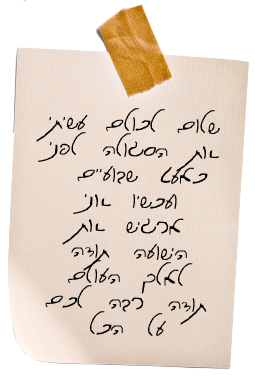 שלום לכולם עשיתי
את הסגולה לפני
כמעט שבועיים
ועכשיו אני
מרגיש את
הישועה תודה
לאלק העולם
תודה רבה לכם
על הכל